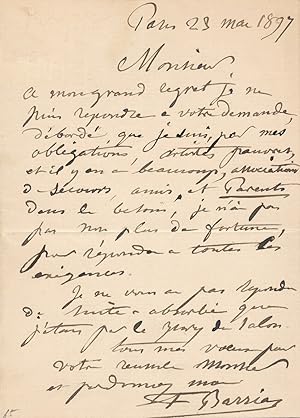 Paris 23 mai 1897
Monsieur
a mon grand regret je ne
puis repondre a votre demande
débordé que je suis, par mes
obligations, artistes pauvres,
et il y en a beaucoup, associations
de secours, amis, et Parents
dans le besoin, je n'ai pas
pas non plus de fortune,
pour répondre a toutes les
exigences.
Je ne vous ai pas repondu
de suite absorbé que
j'étais par le Jury du Salon
tous mes voeux pour
votre reussite Monsieur
et pardonnez moi
F Barrias